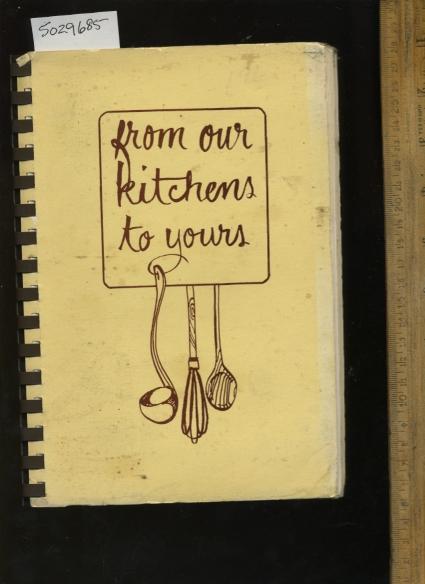 5029685
from our
kitchens
to yours